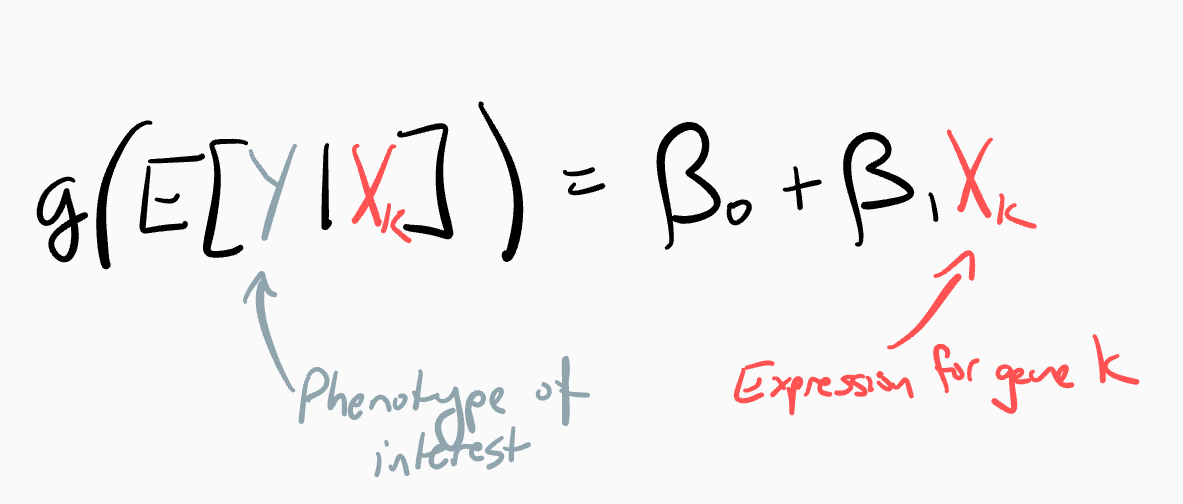 g(E[Y|Xₖ]) = β₀ + β₁Xₖ
Phenotype of
interest
Expression for gene k